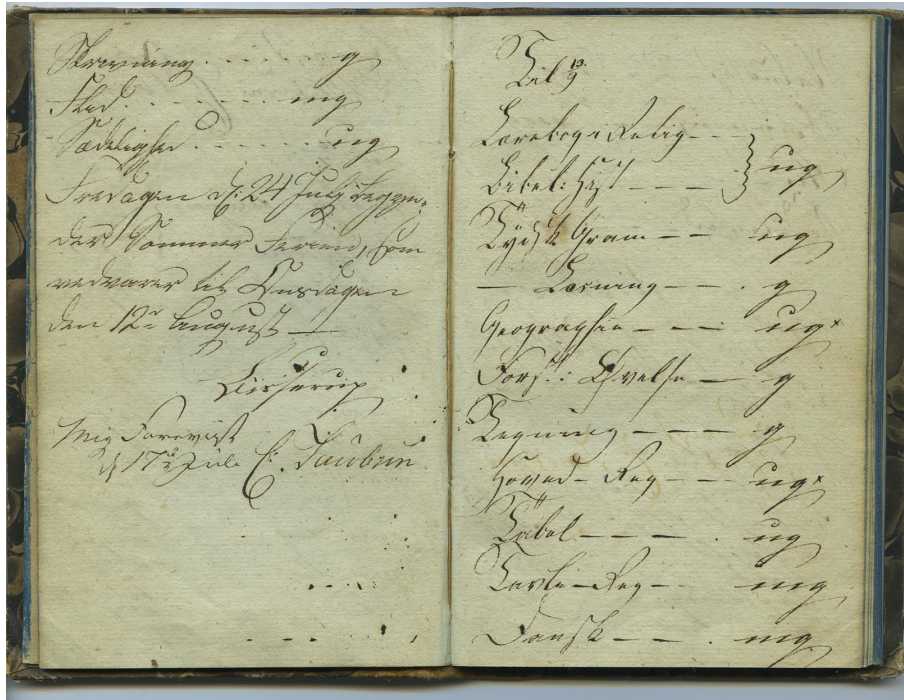 Skrivning . . . . g
Flid . . . . . . mg
Sædelighed . . . . . . ug
Fredagen d: 24 July begyn-
der Sommer Ferien, som
vedvarer til Onsdagen
den 12te August —
Mig Foreviist
d 17de Juli C: Jacobsen
Til 13/9
Lærebog i Relig - - -
Bibel: Hist - - - - ug
Tydsk Gram - - ug
— Læsning - - . g
Geographie - - - : ug×
Forst: Øvelse - g
Tegning - - - - g
Hoved - Reg - - - ug×
Tabel - - - - . ug
Tavle - Reg - mg
Dansk - - - . mg